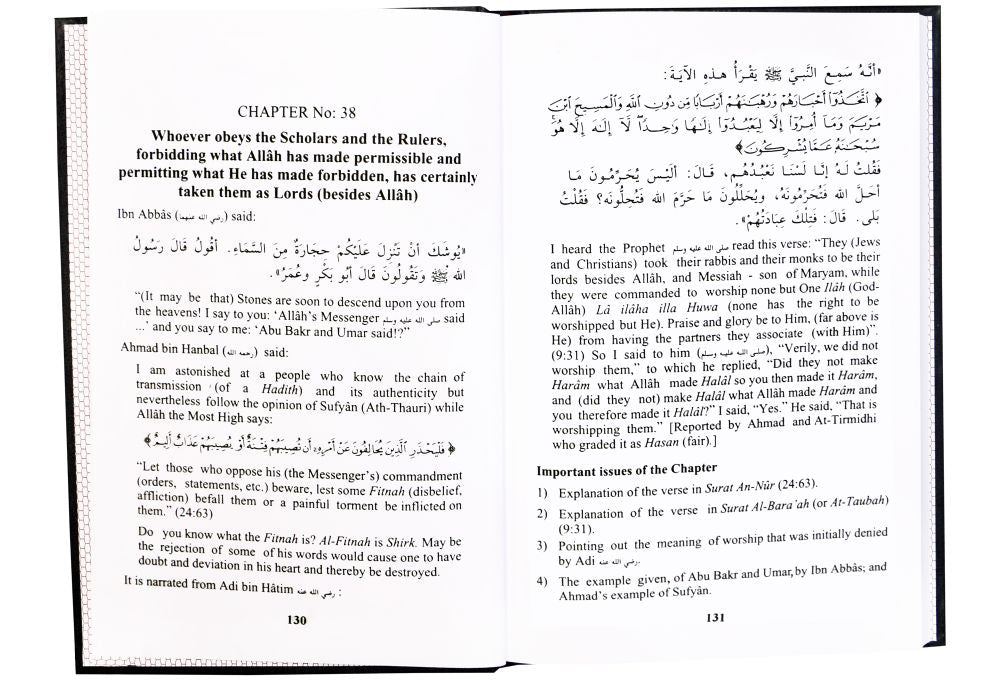 CHAPTER No: 38
Whoever obeys the Scholars and the Rulers,
forbidding what Allâh has made permissible and
permitting what He has made forbidden, has certainly
taken them as Lords (besides Allâh)
Ibn Abbâs (رضي الله عنهما) said:
«يُوشَكُ أَنْ تَنْزِلَ عَلَيْكُمْ حِجَارَةٌ مِنَ السَّمَاءِ. أَقُولُ قَالَ رَسُولُ
الله ﷺ وَتَقُولُونَ قَالَ أَبُو بَكْرٍ وَعُمَرُ».
“(It may be that) Stones are soon to descend upon you from
the heavens! I say to you: ‘Allâh’s Messenger صلى الله عليه وسلم said
...’ and you say to me: ‘Abu Bakr and Umar said!?”
Ahmad bin Hanbal (رحمه الله) said:
I am astonished at a people who know the chain of
transmission (of a Hadith) and its authenticity but
nevertheless follow the opinion of Sufyân (Ath-Thauri) while
Allâh the Most High says:
﴿ فَلْيَحْذَرِ الَّذِينَ يُخَالِفُونَ عَنْ أَمْرِهِ أَن تُصِيبَهُمْ فِتْنَةٌ أَوْ يُصِيبَهُمْ عَذَابٌ أَلِيمٌ ﴾
“Let those who oppose his (the Messenger’s) commandment
(orders, statements, etc.) beware, lest some Fitnah (disbelief,
affliction) befall them or a painful torment be inflicted on
them.” (24:63)
Do you know what the Fitnah is? Al-Fitnah is Shirk. May be
the rejection of some of his words would cause one to have
doubt and deviation in his heart and thereby be destroyed.
It is narrated from Adi bin Hâtim رضي الله عنه :
130
«أَنَّهُ سَمِعَ النَّبِيَّ ﷺ يَقْرَأُ هذِهِ الآيَةَ:
﴿ اتَّخَذُوا أَحْبَارَهُمْ وَرُهْبَانَهُمْ أَرْبَابًا مِّن دُونِ اللَّهِ وَالْمَسِيحَ ابْنَ
مَرْيَمَ وَمَا أُمِرُوا إِلَّا لِيَعْبُدُوا إِلَٰهًا وَاحِدًا لَّا إِلَٰهَ إِلَّا هُوَ
سُبْحَانَهُ عَمَّا يُشْرِكُونَ﴾
فَقُلْتُ لَهُ إِنَّا لَسْنَا نَعْبُدُهُم، قَالَ: أَلَيْسَ يُحَرِّمُونَ مَا
أَحَلَّ الله فَتُحَرِّمُونَهُ، ويُحَلِّلُونَ مَا حَرَّمَ الله فَتُحِلُّونَه؟ فَقُلْتُ
بَلى. قَالَ: فَتِلْكَ عِبَادَتُهُمْ».
I heard the Prophet صلى الله عليه وسلم read this verse: “They (Jews
and Christians) took their rabbis and their monks to be their
lords besides Allâh, and Messiah - son of Maryam, while
they were commanded to worship none but One Ilâh (God-
Allâh) Lâ ilâha illa Huwa (none has the right to be
worshipped but He). Praise and glory be to Him, (far above is
He) from having the partners they associate (with Him)”.
(9:31) So I said to him (صلى الله عليه وسلم), “Verily, we did not
worship them,” to which he replied, “Did they not make
Harâm what Allâh made Halâl so you then made it Harâm,
and (did they not) make Halâl what Allâh made Harâm and
you therefore made it Halâl?” I said, “Yes.” He said, “That is
worshipping them.” [Reported by Ahmad and At-Tirmidhi
who graded it as Hasan (fair).]
Important issues of the Chapter
1) Explanation of the verse in Surat An-Nûr (24:63).
2) Explanation of the verse in Surat Al-Bara’ah (or At-Taubah)
(9:31).
3) Pointing out the meaning of worship that was initially denied
by Adi رضي الله عنه.
4) The example given, of Abu Bakr and Umar, by Ibn Abbâs; and
Ahmad’s example of Sufyân.
131